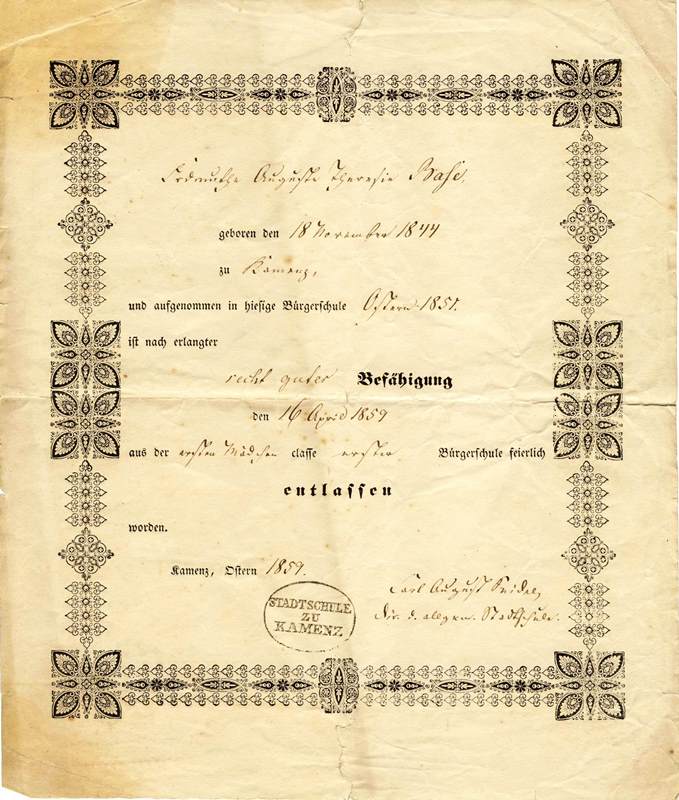 Erdmuthe Auguste Theresie Base.
geboren den 18 November 1844
zu Kamenz,
und aufgenommen in hiesige Bürgerschule Ostern 1851.
ist nach erlangter
recht guter Befähigung
den 16 April 1859
aus der ersten Mädchen classe erster Bürgerschule feierlich
entlassen
worden.
Kamenz, Ostern 1859.
Carl August
STADTSCHULE
ZU
KAMENZ
Dir. d. allgem. Stadtschule.